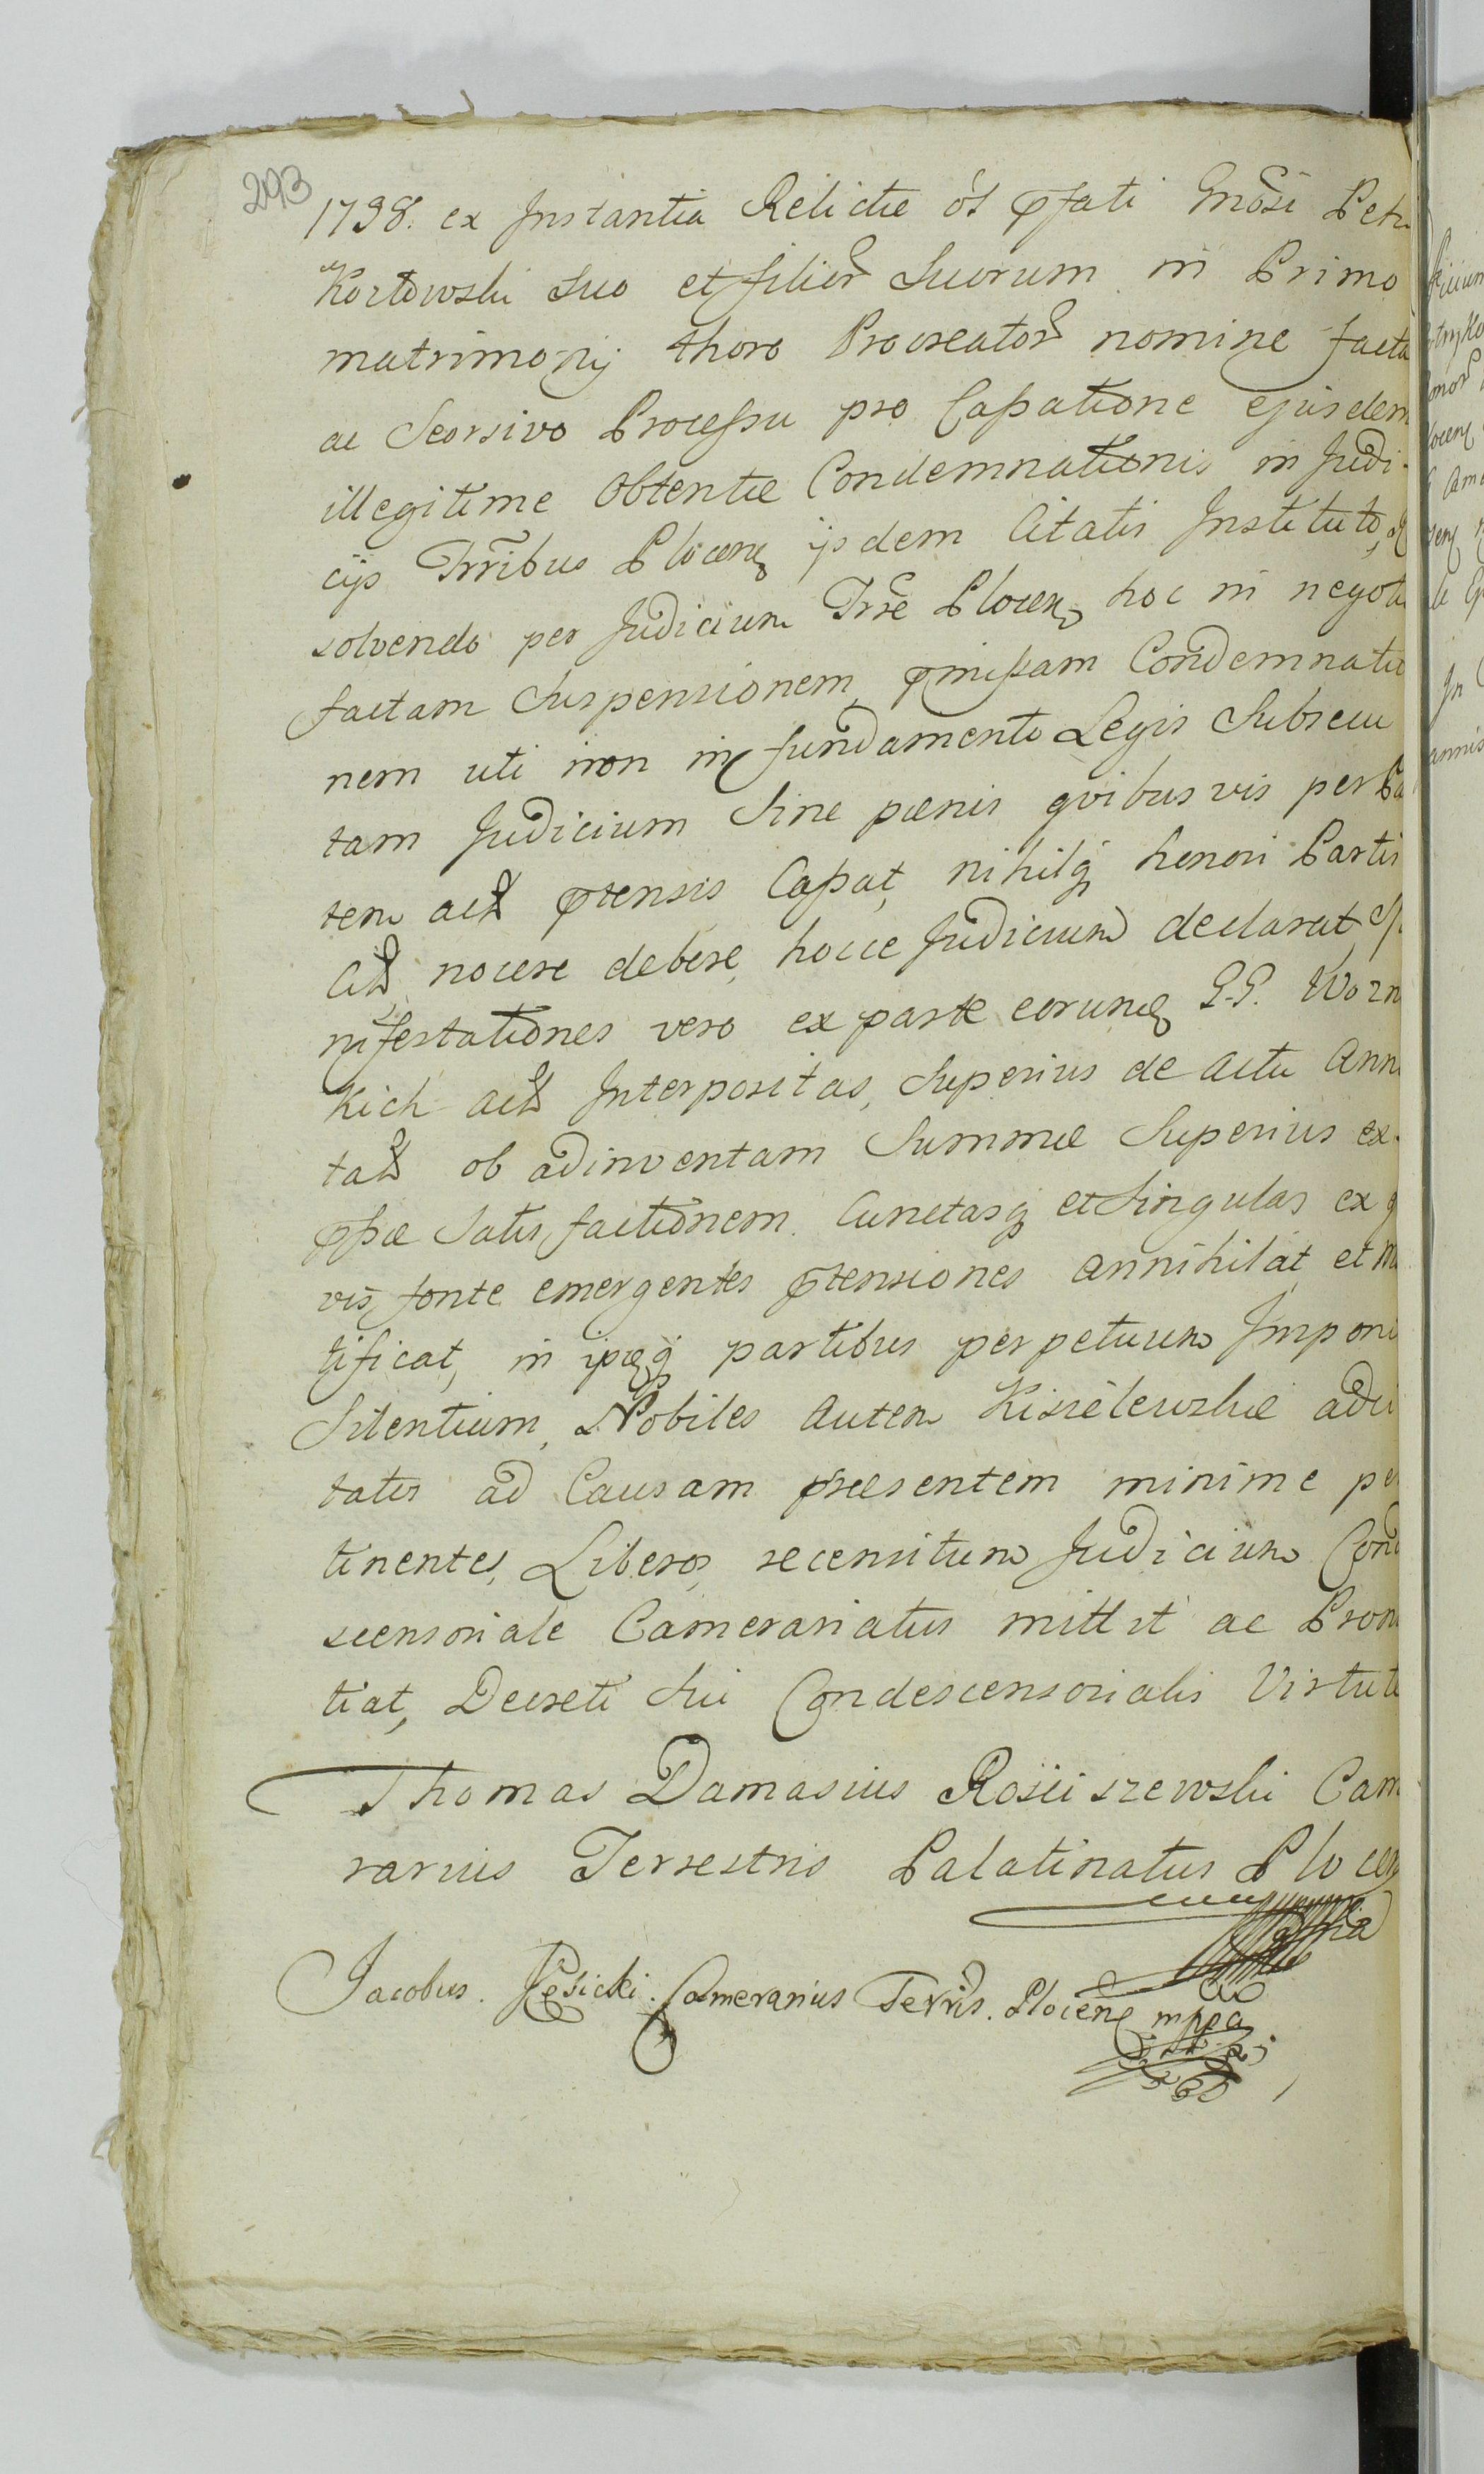 293
1738. ex Instantia Relictæ ol pfati Gnosi Petri
Kozłowski suo et filior Suorum in Primo
matrimonij thoro Procreator nomine facta
ac Seorsivo Processu pro Cassatione ejusdem
illegitime Obtentæ Condemnationis in Judi-
cijs Trribus Plocen ijsdem Citatis Instituto,
solvendo per Judicium Trre Plocen hoc in negoti
factam Suspensionem, pmissam Condemnatio
nem uti non in fundamento Legis Subsecu
tam Judicium Sine pænis qvibusvis per Pa
tem act ptensis Cassat, nihilq honori Partis
Cit nocere debere, hocce Judicium declarat,
nifestationes vero ex parte eorund G.G. Wozn
kich act Interpositas, Superius de actu Anno
tat ob adinventam Summæ Superius ex-
pssæ Satisfactionem. Cunctasq et Singulas ex q
vis fonte emergentes ptensiones annihilat et m
tificat, in ipsq partibus perpetuum Imponi
Silentium, Nobiles autem Kisielewskie ad ci
tatis ad Causam præsentem minime per
tinentes, Liberos, recensitum Judicium Cond
scensoriale Camerariatus mittit ac Pron
tiat, Decreti Sui Condescensorialis Virtute
Thomas Damasius Rosciszewski Cam
rarius Terrestris Palatinatus Plocen
Jacobus. Camerarius Terris. Plocen mppa